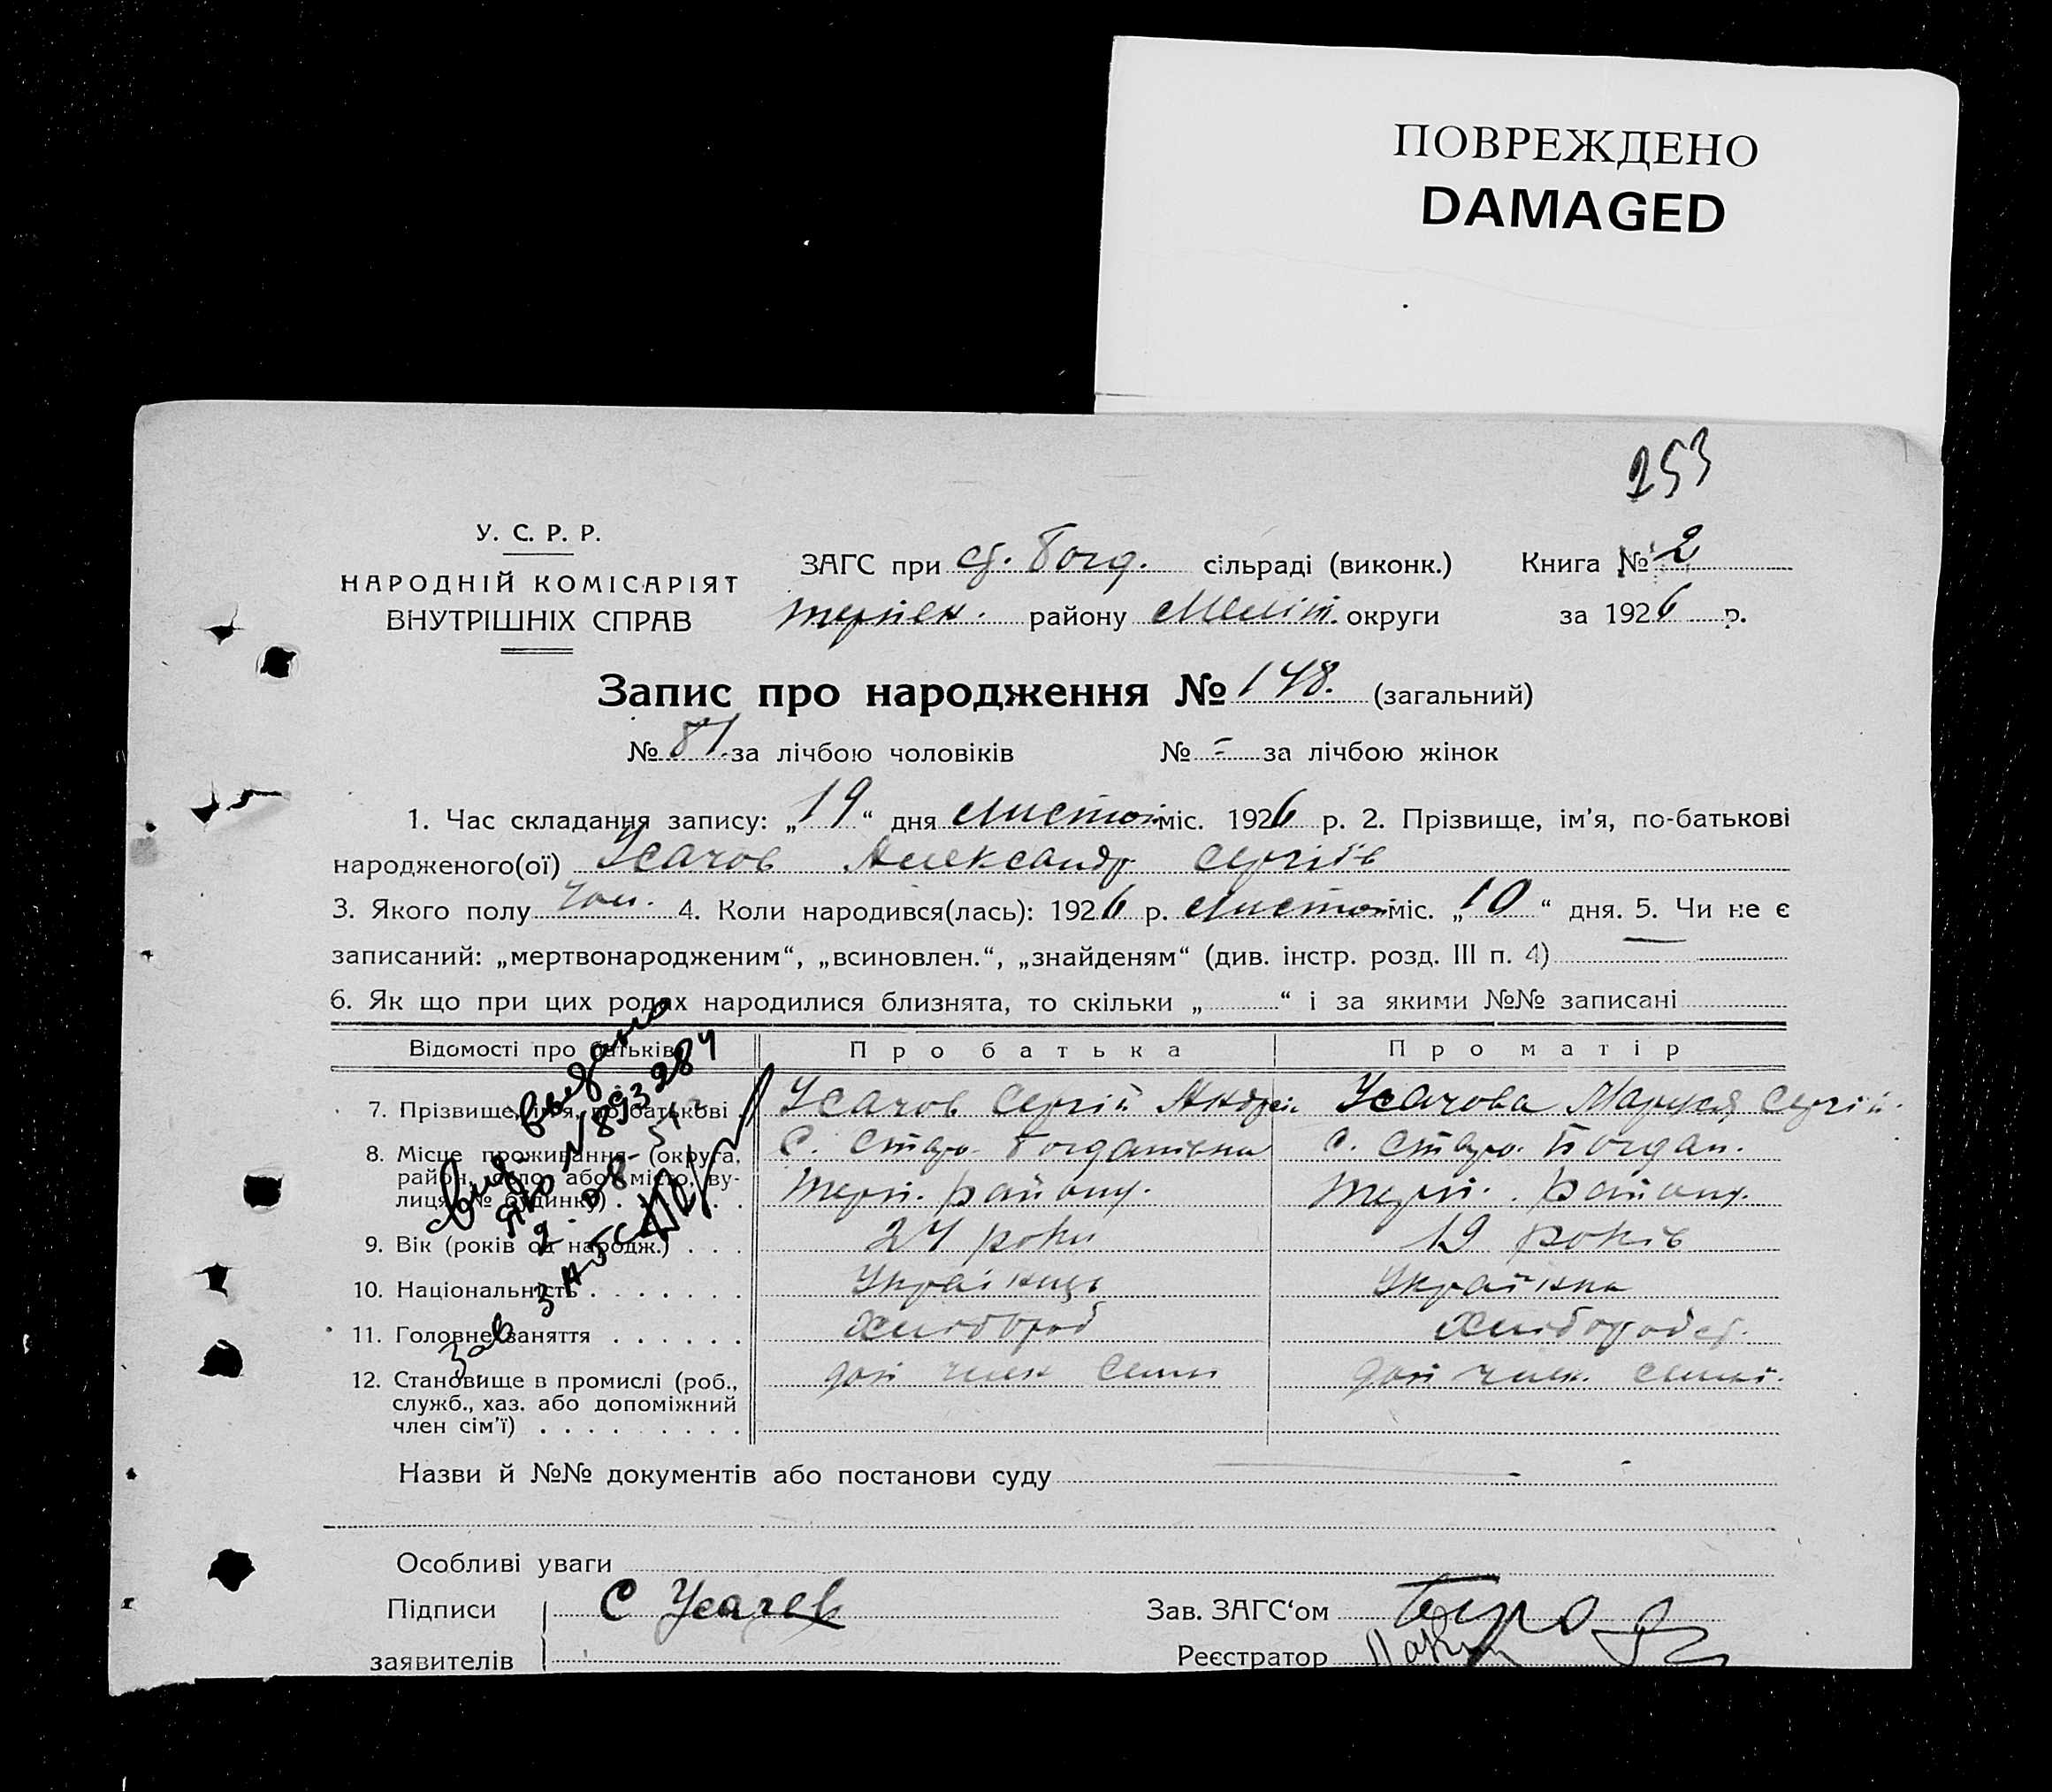 ПОВРЕЖДЕНО
DAMAGED
253
У. С. Р. Р.
НАРОДНІЙ КОМІСАРІЯТ
ВНУТРІШНІХ СПРАВ
ЗАГС при ст. Богд. сільраді (виконк.) Книга № 2
терпен. району Меліт. округи за 1926 р.
Запис про народження № 148. (загальний)
№ 81 за лічбою чоловіків № - за лічбою жінок
1. Час складання запису: „19“ дня листоп міс. 1926 р. 2. Прізвище, ім'я, по-батькові
народженого(ої) Усачов Александр Сергіїв
3. Якого полу чол. 4. Коли народився(лась): 1926 р. листоп міс. „10“ дня. 5. Чи не є
записаний: „мертвонародженим“, „всиновлен.“, „знайденям“ (див. інстр. розд. III п. 4) —
6. Як що при цих родах народилися близнята, то скільки „ “ і за якими №№ записані
Відомості про батьків Про батька Про матір
7. Прізвище, ім'я, по-батькові . Усачов Сергій Андрій Усачова Маруся Сергій.
8. Місце проживання (округа, район, село, або місто, вулиця, № будинку) . . . С. Стар. Богданівка с. Стар. Богдан.
Терп. району. Терп. району.
9. Вік (років од народж.) . . . 24 роки 19 років
10. Національність . . . . . . . Українець Українка
11. Головне заняття . . . . . . Хлібороб Хлібороб
12. Становище в промислі (роб., служб., хаз. або допоміжний член сім'ї) . . . . . . . . . доп член сімї доп член. сімї.
Выдано
№ 893284
Зав ЗАГС
Назви й №№ документів або постанови суду
Особливі уваги
Підписи С Усачев Зав. ЗАГС'ом
заявителів Реєстратор